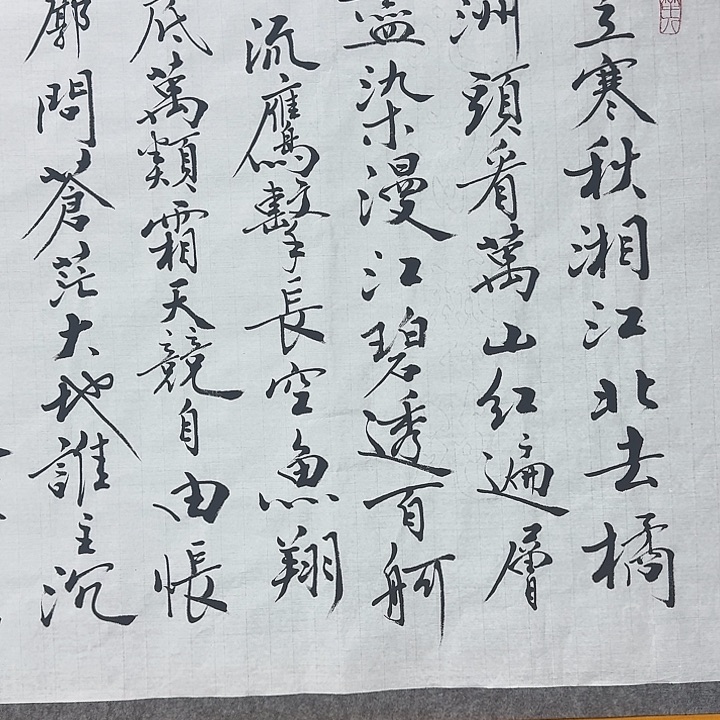 立寒秋湘江北去橘
洲頭看萬山紅遍層
盡染漫江碧透百舸
流鷹擊長空魚翔
底萬類霜天競自由悵
廓問蒼茫大地誰主沉